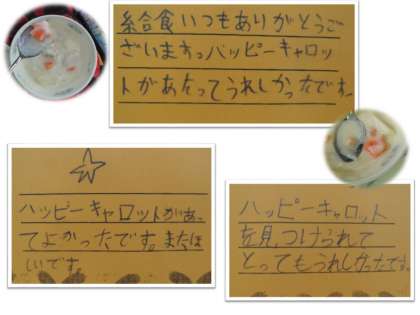 給食いつもありがとうご
ざいますっハッピーキャロッ
トがあたってうれしかったです。
ハッピーキャロットがあっ
てよかったです。またほ
しいです。
ハッピーキャロット
を見つけられて
とってもうれしかったです。